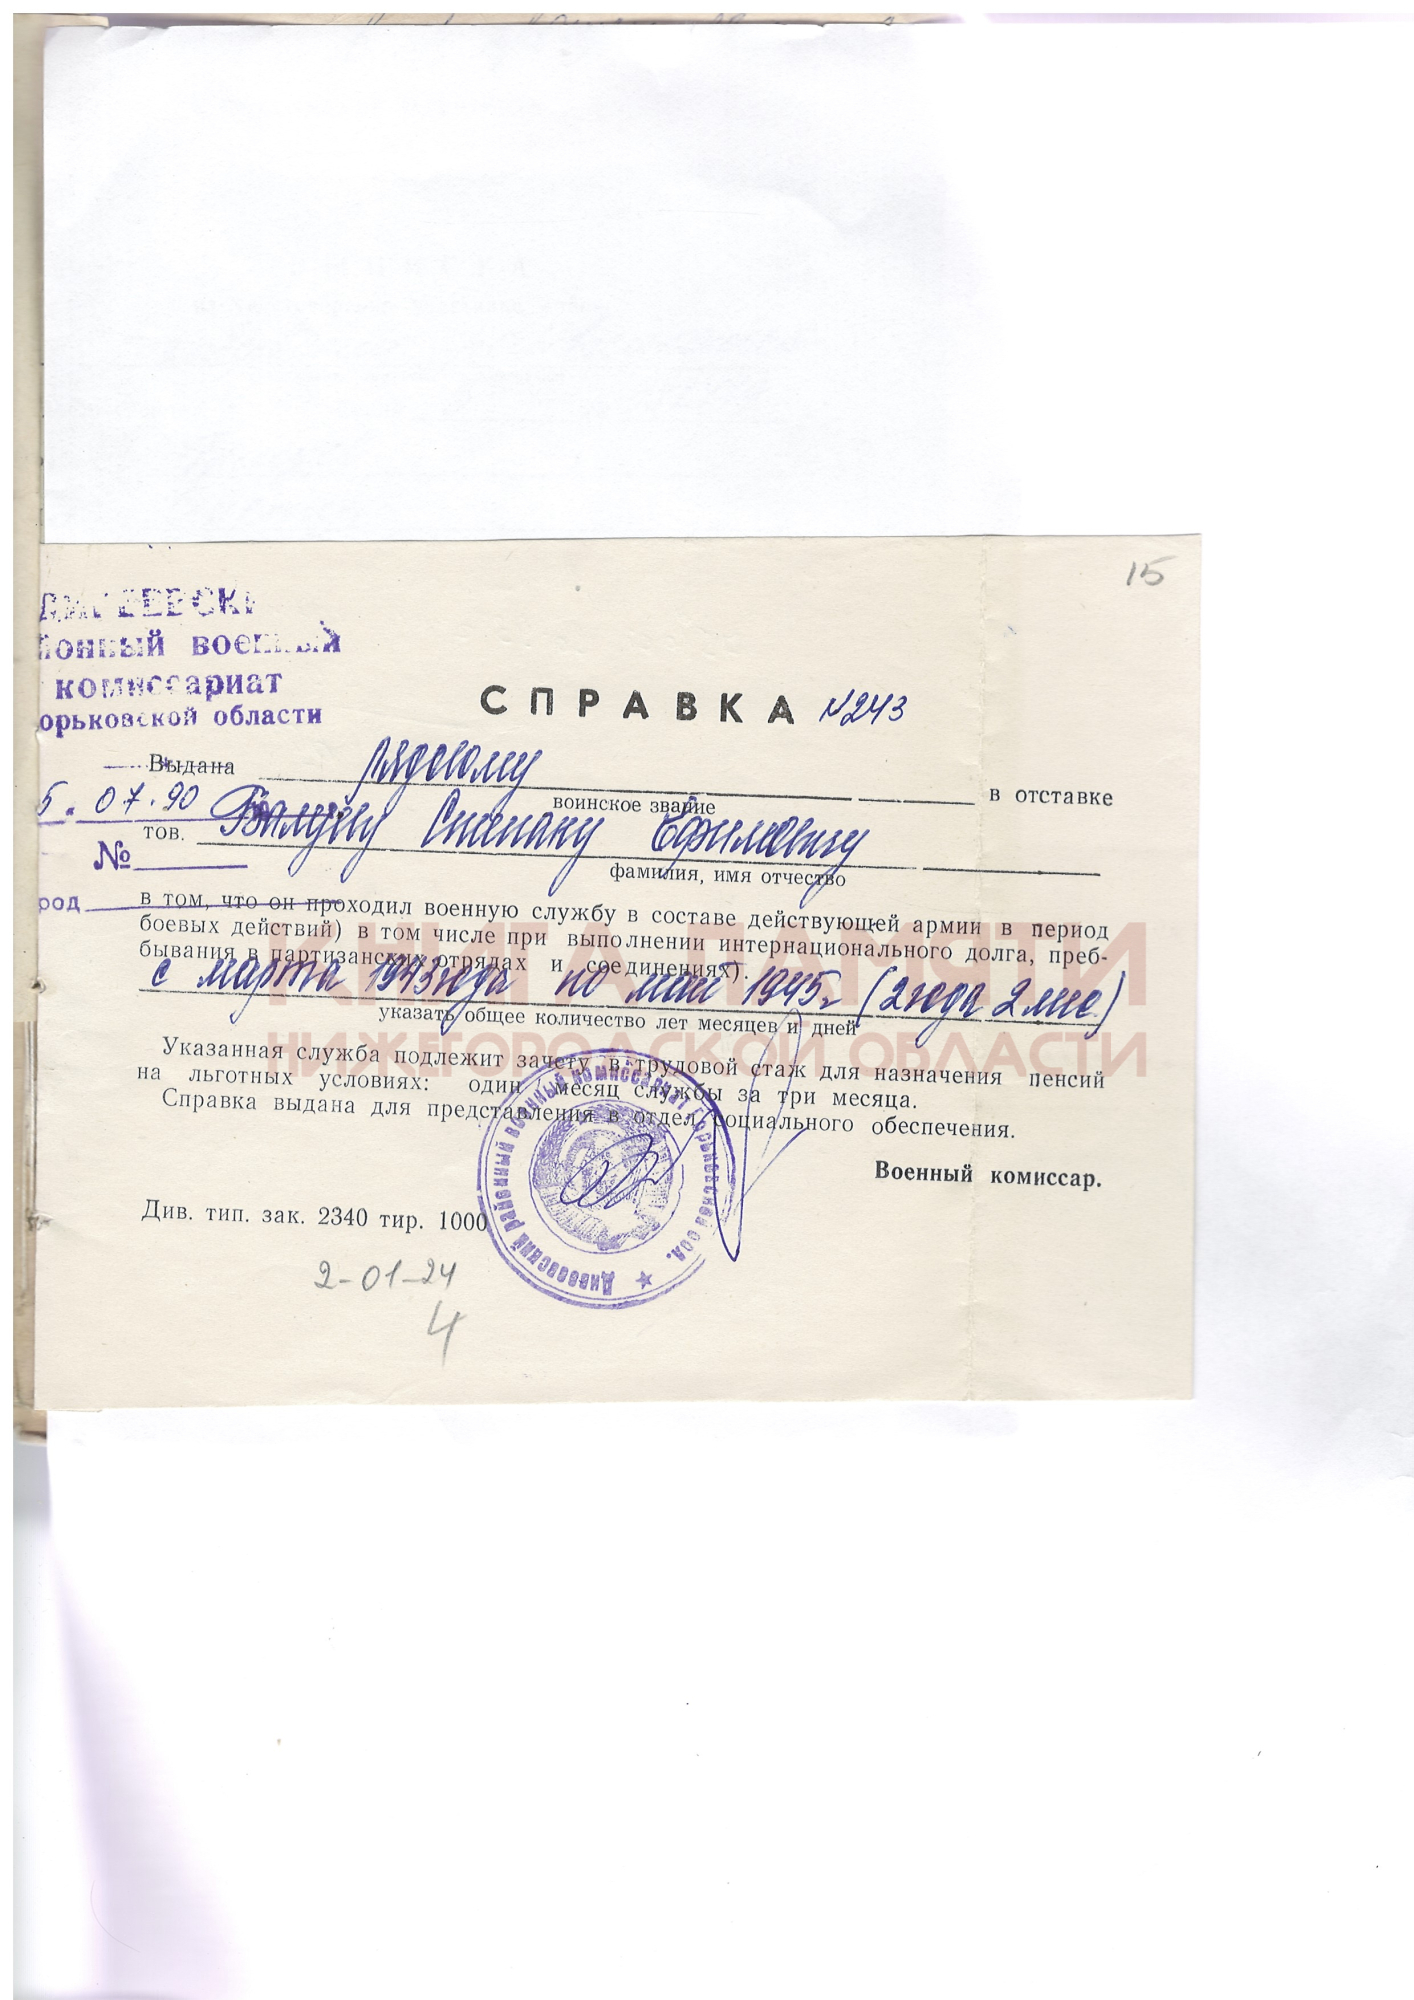 15
районный военный
комиссариат
орьковской области
СПРАВКА №243
Выдана рядовому в отставке
воинское звание
5. 07.90
тов. Балуеву Степану Ефимовичу
фамилия, имя отчество
№
род
в том, что он проходил военную службу в составе действующей армии в период
боевых действий) в том числе при выполнении интернационального долга, преб-
бывания в партизанских отрядах и соединениях).
с марта 1943 года по май 1945г (2 года 2 мес.)
указать общее количество лет месяцев и дней
КНИГА ПАМЯТИ
НИЖЕГОРОДСКОЙ ОБЛАСТИ
Указанная служба подлежит зачету в трудовой стаж для назначения пенсий
на льготных условиях: один месяц службы за три месяца.
Справка выдана для представления в отдел социального обеспечения.
Военный комиссар.
Дивеевский районный военный комиссариат Горьковской обл.
Див. тип. зак. 2340 тир. 1000
2-01-24
4